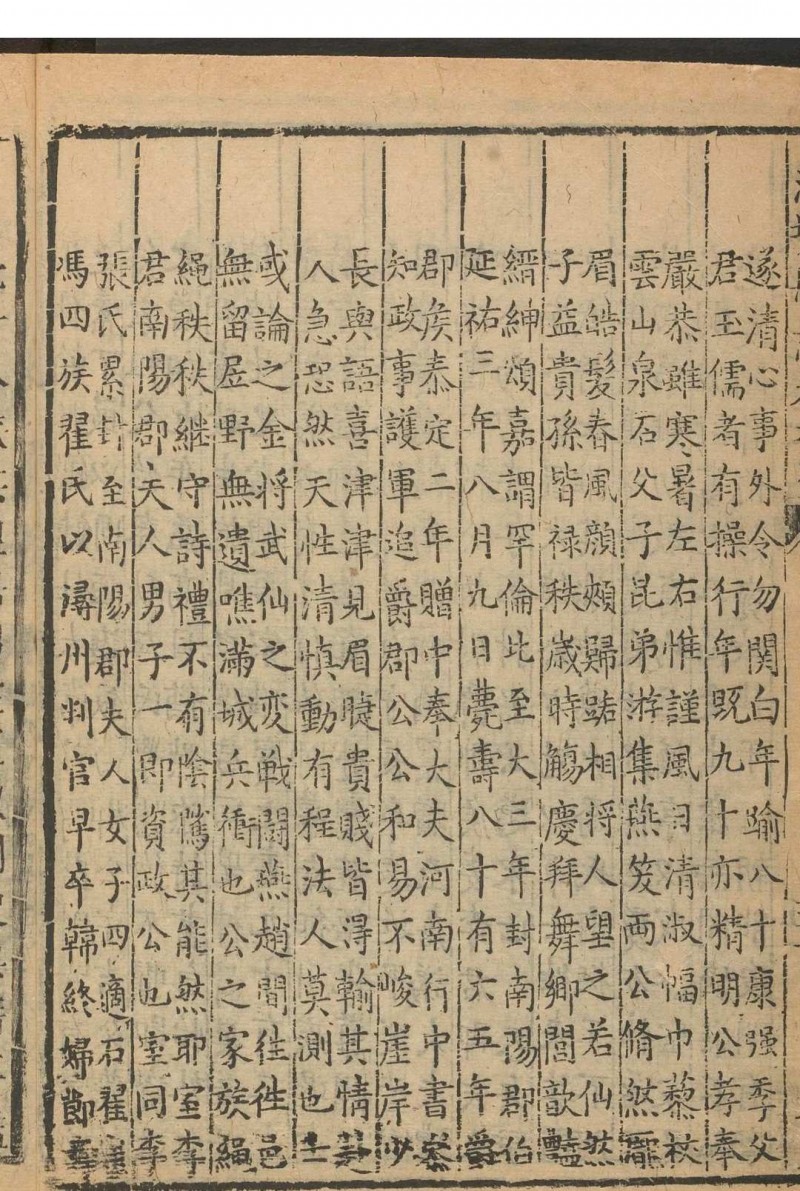 遂清心事外令勿関白年踰八十康强季父
君玉儒者有操行年既九十亦精明公孝奉
嚴恭雖寒暑左右惟謹風日清淑幅巾藜杖
雲山泉石父子昆弟游集燕笑兩公翛然龎
眉皓髮春風顔頰歸踞相將人望之若仙然
子益貴孫皆禄秩歳時觴慶拜舞鄉閭歆豔
縉紳頌嘉謂罕倫比至大三年封南陽郡伯
延祐三年八月九日薨壽八十有六五年爵
郡侯泰定二年贈中奉大夫河南行中書叅
知政事護軍追爵郡公公和易不峻崖岸少
長與語喜津津見眉睫貴賤皆淂輸其情赴
人急恐然天性清慎動有程法人莫測也士
或論之金將武仙之変戦鬭燕趙間往徃邑
無留居野無遺噍滿城兵衝也公之家族繩
繩秩秩継守詩禮不有陰隲其能然耶室李
君南陽郡夫人男子一即資政公也室同李
張氏累封至南陽郡夫人女子四適石翟
馮四族翟氏以潯州判官早卒韓終婦節